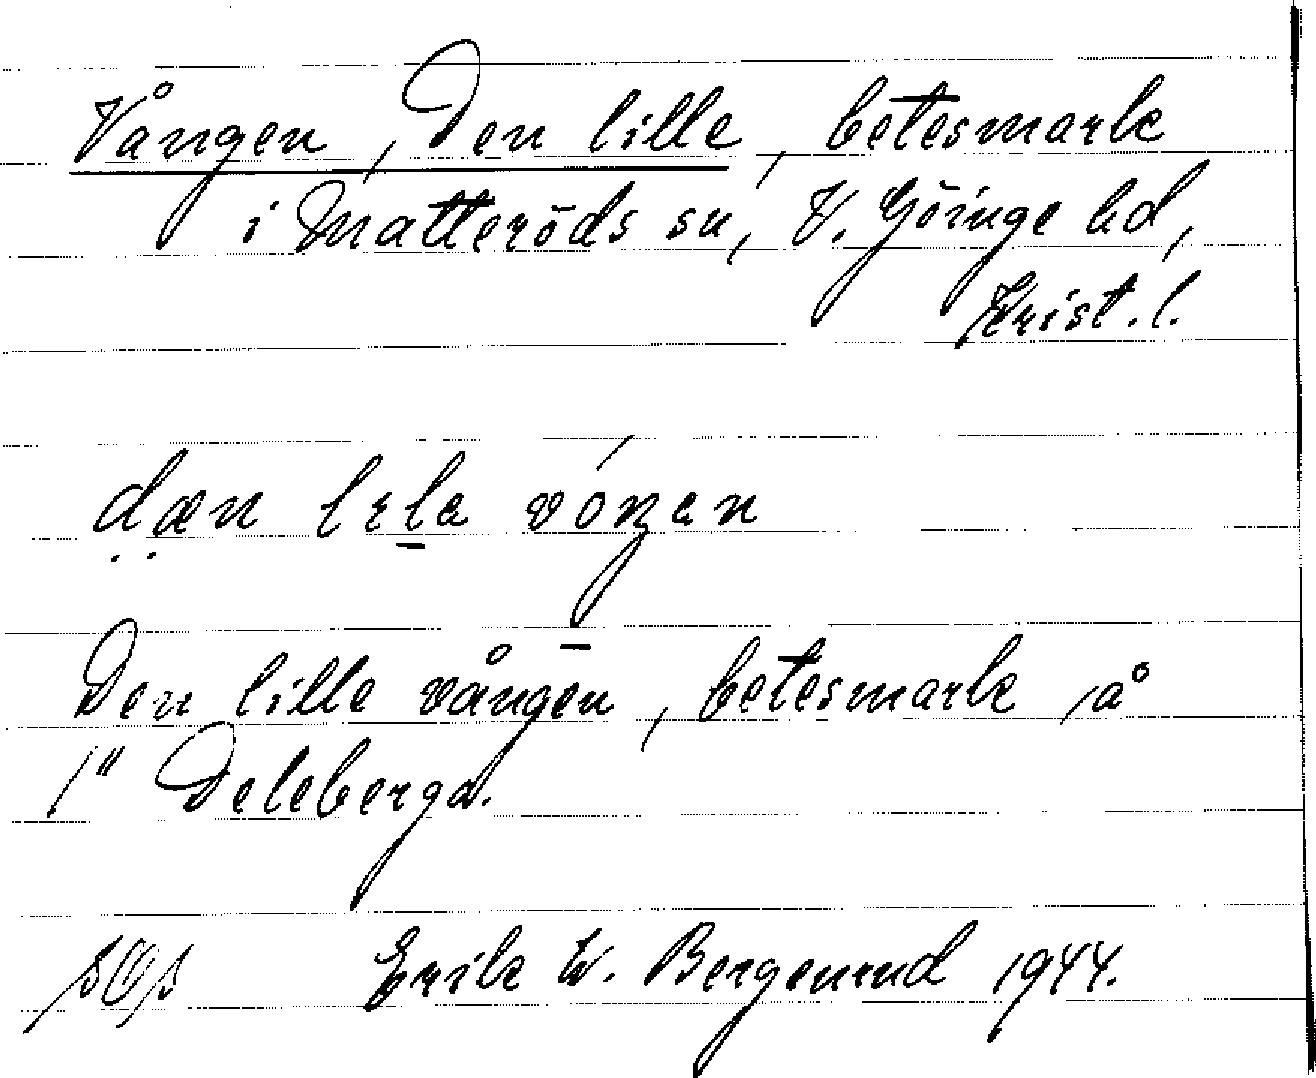 Vången, Den lille, betesmark
i Matteröds sn, V. Göinge hd,
Krist. l.
dæn lɩla vóŋan
Den lille vången, betesmark å
1" Deleberga.
Erik W. Bergenrud 1944.